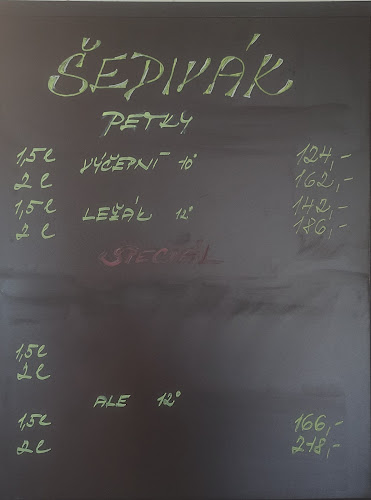 ŠEDIVÁK
PETKY
1,5l VÝČEPNÍ 10° 124,-
2l 162,-
1,5l LEŽÁK 12° 142,-
2l 186,-
SPECIÁL
1,5l
2l
ALE 12°
1,5l 166,-
2l 218,-